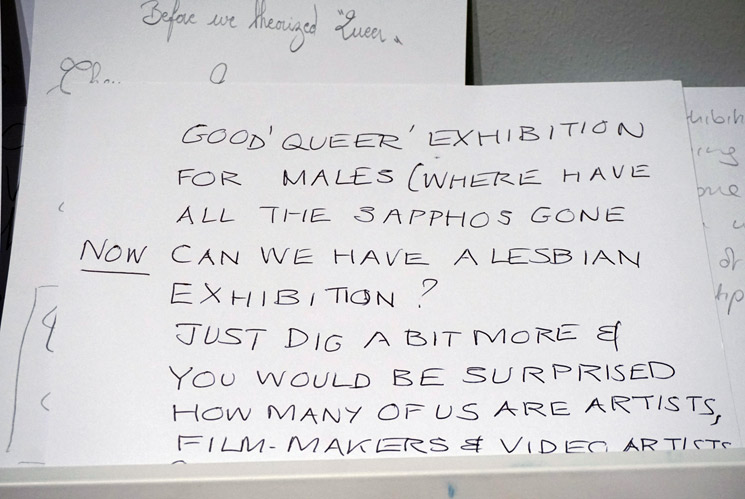 Before we theorized "Queer"
GOOD 'QUEER' EXHIBITION
FOR MALES (WHERE HAVE
ALL THE SAPPHOS GONE
NOW CAN WE HAVE A LESBIAN
EXHIBITION?
JUST DIG A BIT MORE &
YOU WOULD BE SURPRISED
HOW MANY OF US ARE ARTISTS,
FILM-MAKERS & VIDEO ARTISTS